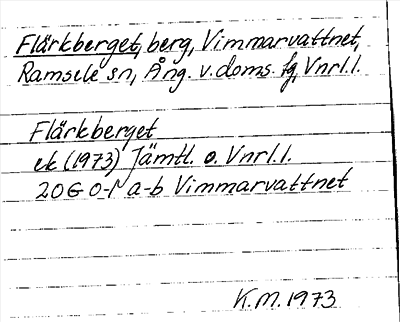 Flärkberget, berg, Vimmarvattnet,
Ramsele sn, Ång. v. doms. fg, Vnrl.l.
Flärkberget
ek (1973) Jämtl. o. Vnrl.l.
20G 0-1 a-b Vimmarvattnet
K.M. 1973